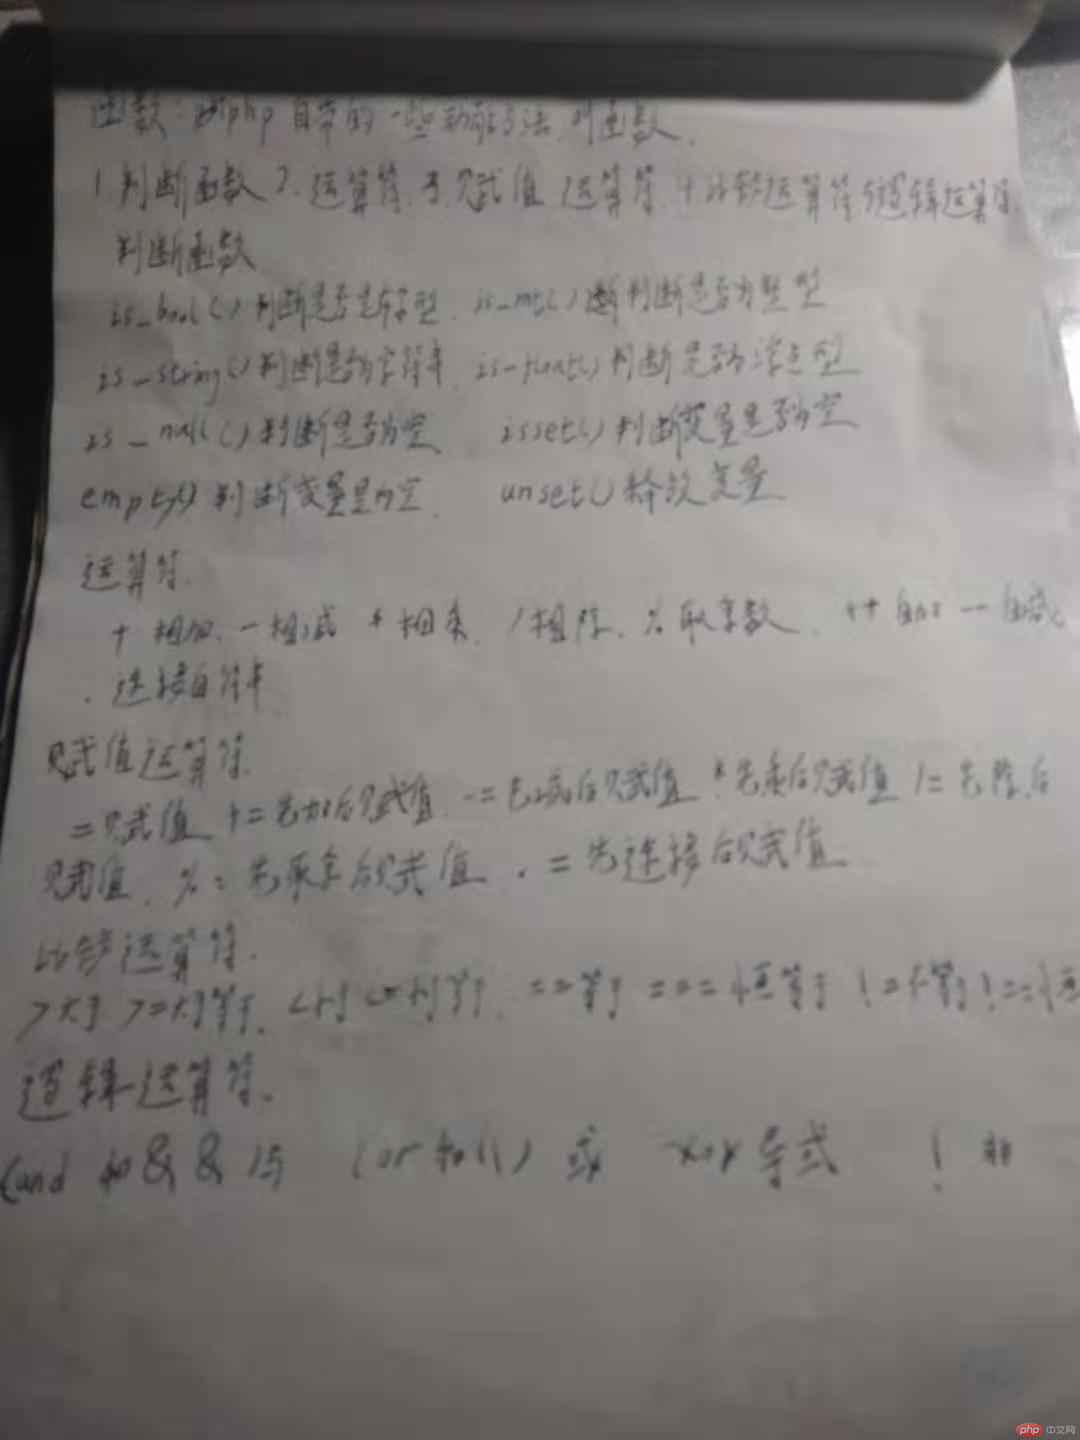 函数:php自带的一些功能方法,叫函数.
1.判断函数 2.运算符 3.赋值运算符 4比较运算符 5逻辑运算符.
判断函数
is_bool() 判断是否是 型. is_int() 判断是否为整型
is_string() 判断是否为字符串 is_float() 判断是否为浮点型
is_null() 判断是否为空 isset() 判断变量是否为空
empty() 判断变量是 为空. unset() 释放变量
运算符.
+ 相加. - 相减 * 相乘. / 相除. % 取余数. ++ 自加 -- 自减
. 连接 符串
赋值运算符.
= 赋值 += 先加后赋值 -= 先减后赋值 * 先乘后赋值 /= 先除后
赋值. %= 先取余后赋值 .= 先连接后赋值
比较运算符.
>大于 >=大于等于. <小于 <=小于等于. ==等于 ===恒等于 !=不等于 !==恒
逻辑运算符.
(and 和 && 与 (or 和 ||) 或 xor ! 非
php 中文网